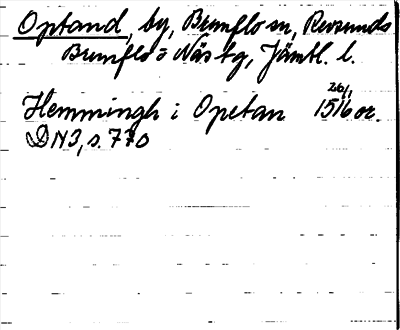 Optand, by, Brunflo sn, Revsunds
Brunflo o Näs tg, Jämtl. l.
26/1
Hemmingh i Opetan 1516 or.
DN3, s. 770